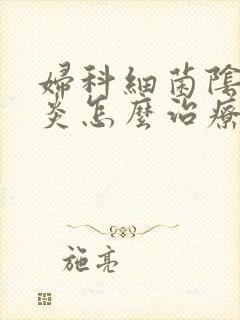 婦科細菌陰
炎怎麼治療
施亮